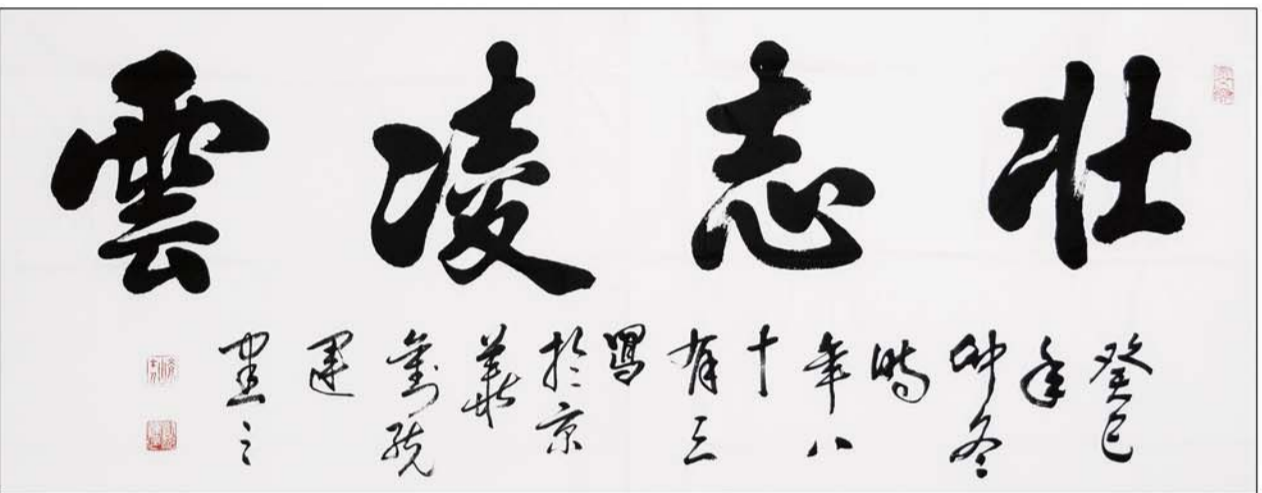 壯志凌雲
癸巳
年
仲冬
時
年八
十
有三
寫
於京
華
劉
之